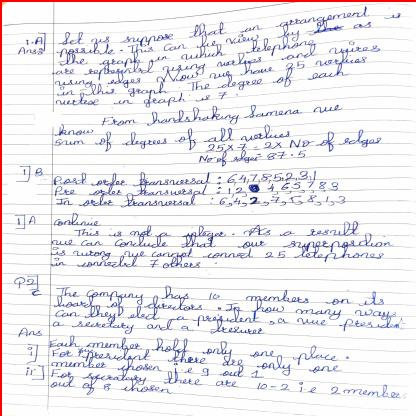 1.A] Let us suppose that an arrangement is
Ans possible. This can be view by as
the graph in which telephone
are represented using vertices and wires
using edges. Now we have 25 vertices
in this graph. The degree of each
vertex in graph is 7.
From handshaking
know
Sum of degrees of all vertices
25x7 = 2x No of edges
No of edges 87.5
1] B
Post order transversal : 6,4,7,8,5,2,3,1
Pre order transversal : 1,2 4,6,5,7,8,3
In order transversal : 6,4,2,7,5,8,1,3
1] A continue
This is not a integer. As a result
we can conclude that our
is wrong we cannot connect 25 telephones
in connected 7 others.
Q2]
c The Company has 10 members on its
board of directors. In how many ways
can they elect a president, a vice-president
a secretary and a
Ans
Each member hold only one place.
i] For president there are only one
member chosen i.e 9 out 1
ii] For secretary there are 10-2 i.e 2 member
out of 8 chosen